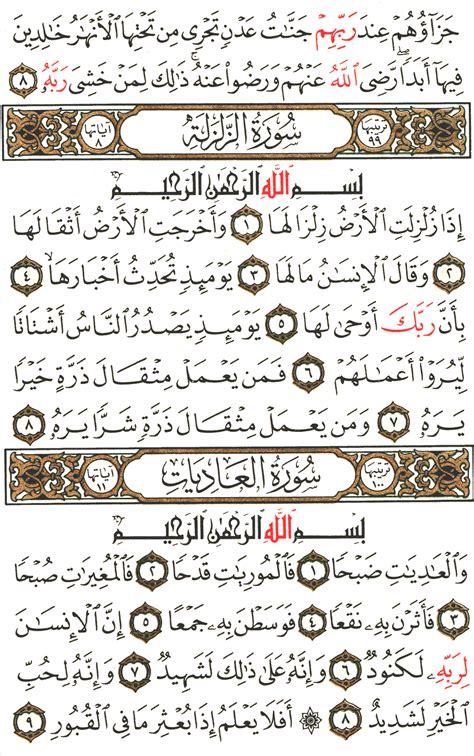 جَزَآؤُهُمۡ عِندَ رَبِّهِمۡ جَنَّٰتُ عَدۡنٖ تَجۡرِي مِن تَحۡتِهَا ٱلۡأَنۡهَٰرُ خَٰلِدِينَ
فِيهَآ أَبَدٗاۖ رَّضِيَ ٱللَّهُ عَنۡهُمۡ وَرَضُواْ عَنۡهُۚ ذَٰلِكَ لِمَنۡ خَشِيَ رَبَّهُۥ ٨
ترتيبها ٩٩ سُورَةُ الزَّلْزَلَةِ آياتها ٨
بِسۡمِ ٱللَّهِ ٱلرَّحۡمَٰنِ ٱلرَّحِيمِ
إِذَا زُلۡزِلَتِ ٱلۡأَرۡضُ زِلۡزَالَهَا ١ وَأَخۡرَجَتِ ٱلۡأَرۡضُ أَثۡقَالَهَا
٢ وَقَالَ ٱلۡإِنسَٰنُ مَا لَهَا ٣ يَوۡمَئِذٖ تُحَدِّثُ أَخۡبَارَهَا ٤
بِأَنَّ رَبَّكَ أَوۡحَىٰ لَهَا ٥ يَوۡمَئِذٖ يَصۡدُرُ ٱلنَّاسُ أَشۡتَاتٗا
لِّيُرَوۡاْ أَعۡمَٰلَهُمۡ ٦ فَمَن يَعۡمَلۡ مِثۡقَالَ ذَرَّةٍ خَيۡرٗا
يَرَهُۥ ٧ وَمَن يَعۡمَلۡ مِثۡقَالَ ذَرَّةٖ شَرّٗا يَرَهُۥ ٨
ترتيبها ١٠٠ سُورَةُ العَادِيَاتِ آياتها ١١
بِسۡمِ ٱللَّهِ ٱلرَّحۡمَٰنِ ٱلرَّحِيمِ
وَٱلۡعَٰدِيَٰتِ ضَبۡحٗا ١ فَٱلۡمُورِيَٰتِ قَدۡحٗا ٢ فَٱلۡمُغِيرَٰتِ صُبۡحٗا
٣ فَأَثَرۡنَ بِهِۦ نَقۡعٗا ٤ فَوَسَطۡنَ بِهِۦ جَمۡعًا ٥ إِنَّ ٱلۡإِنسَٰنَ
لِرَبِّهِۦ لَكَنُودٞ ٦ وَإِنَّهُۥ عَلَىٰ ذَٰلِكَ لَشَهِيدٞ ٧ وَإِنَّهُۥ لِحُبِّ
ٱلۡخَيۡرِ لَشَدِيدٌ ٨ ۞ أَفَلَا يَعۡلَمُ إِذَا بُعۡثِرَ مَا فِي ٱلۡقُبُورِ ٩